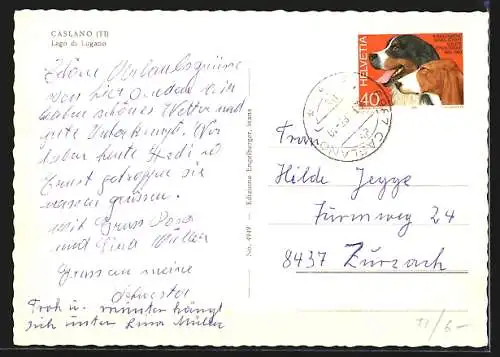 CASLANO (TI)
Lago di Lugano
Schöne Urlaubsgrüsse
von hier
haben schönes Wetter und
gute Unterkunft. Wir
haben heute Hedi u.
Ernst getroffen sie
lassen grüssen.
mit Gruss Rosa
und Müller
Gruss an meine
Schwester
Froh u. munter hängt
sich unten Rosa Müller
Nr. 4949 — Edizione Engelberger, Stans
HELVETIA
40
CASLANO
Frau
Hilde Jegge
Türmweg 24
8437 Zurzach
TI/6-